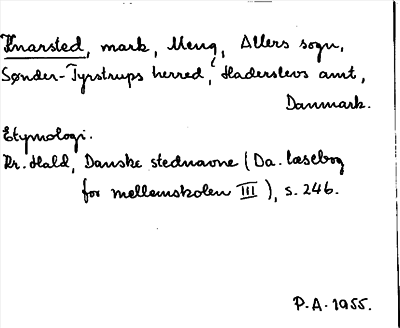 Knarsted, mark, Meng, Allers sogn,
Sønder-Tyrstrups herred, Haderslevs amt,
Danmark.
Etymologi.
Kr. Hald, Danske stednavne (Da. læsebog
for mellemskolen III), s. 246.
P.A. 1955.